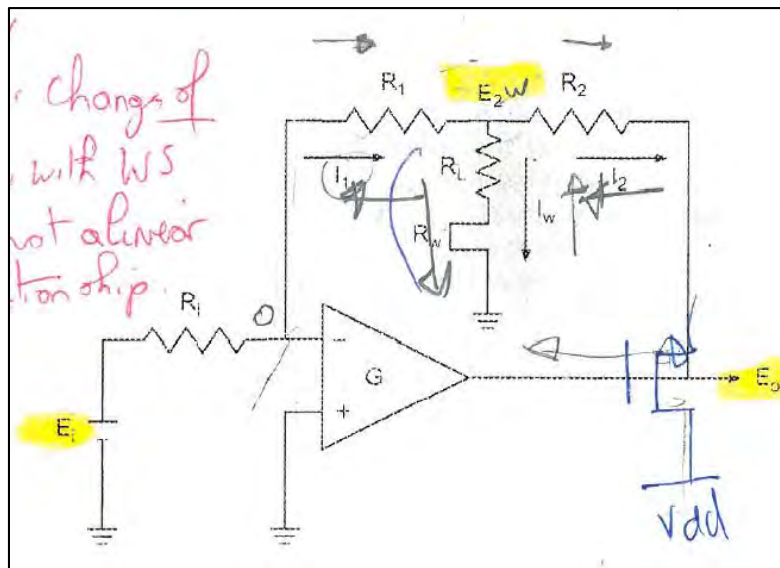 change of
with WS
not a linear
tionship.
R1
E2 W
R2
I1
RL
Iw
I2
Rw
Ri
0
G
-
+
Ei
Eo
Vdd